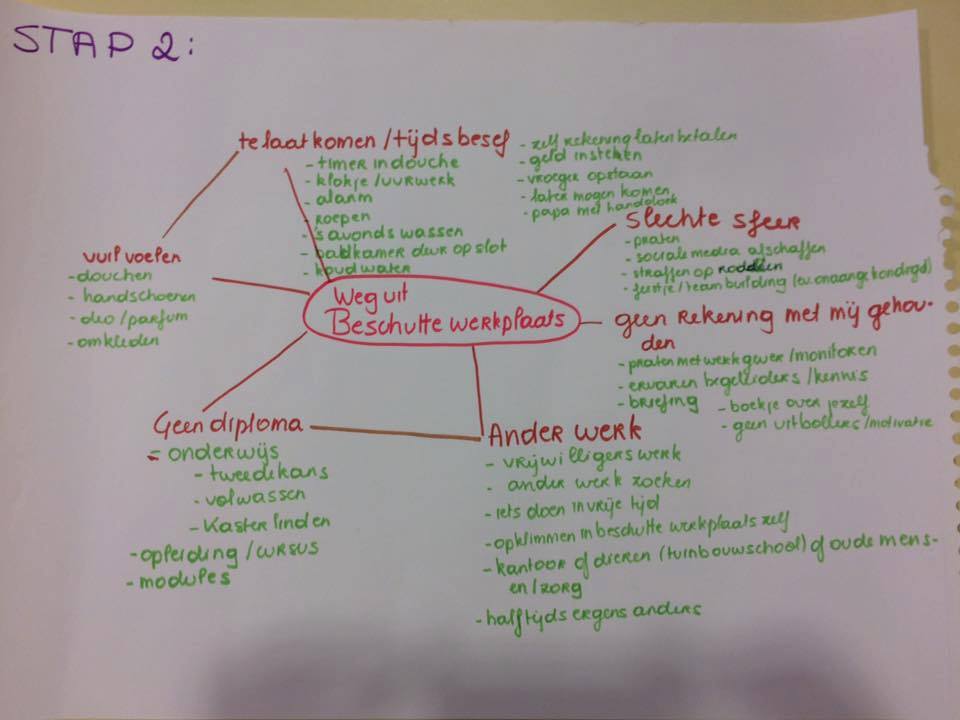 STAP 2:
te laat komen / tijdsbesef
- timer in douche
- klokje / uurwerk
- alarm
- roepen
- 's avonds wassen
- badkamer deur op slot
- koud water
- zelf rekening laten betalen
- geld insteken
- vroeger opstaan
- later mogen komen
- papa met
vuil voelen
- douchen
- handschoenen
- deo / parfum
- omkleden
Weg uit
Beschutte werkplaats
Slechte sfeer
- praten
- sociale media afschaffen
- straffen op roddelen
- feestje / team building (
geen rekening met mij gehou-
den
- praten met werkgever / monitoren
- ervaren begeleiders / kennis
- briefing
- boekje over jezelf
- geen uitbollers / motivatie
Geen diploma
- onderwijs
- tweedekans
- volwassen
- Kasterlinden
- opleiding / cursus
- modules
Ander werk
- vrijwilligerswerk
- ander werk zoeken
- iets doen in vrije tijd
- opklimmen in beschutte werkplaats zelf
- kantoor of dieren (tuinbouwschool) of oude mens-
en / zorg
- halftijds ergens anders